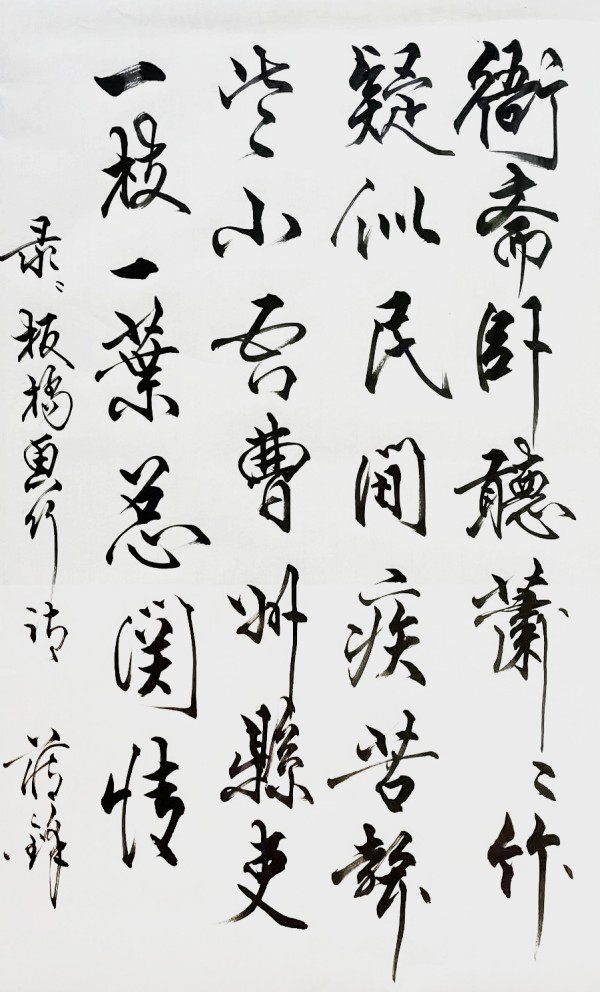 衙斋卧聽蕭〻竹
疑似民间疾苦聲
些小吾曹州縣吏
一枝一葉总関情
录〻板橋画竹诗 蒋鋒